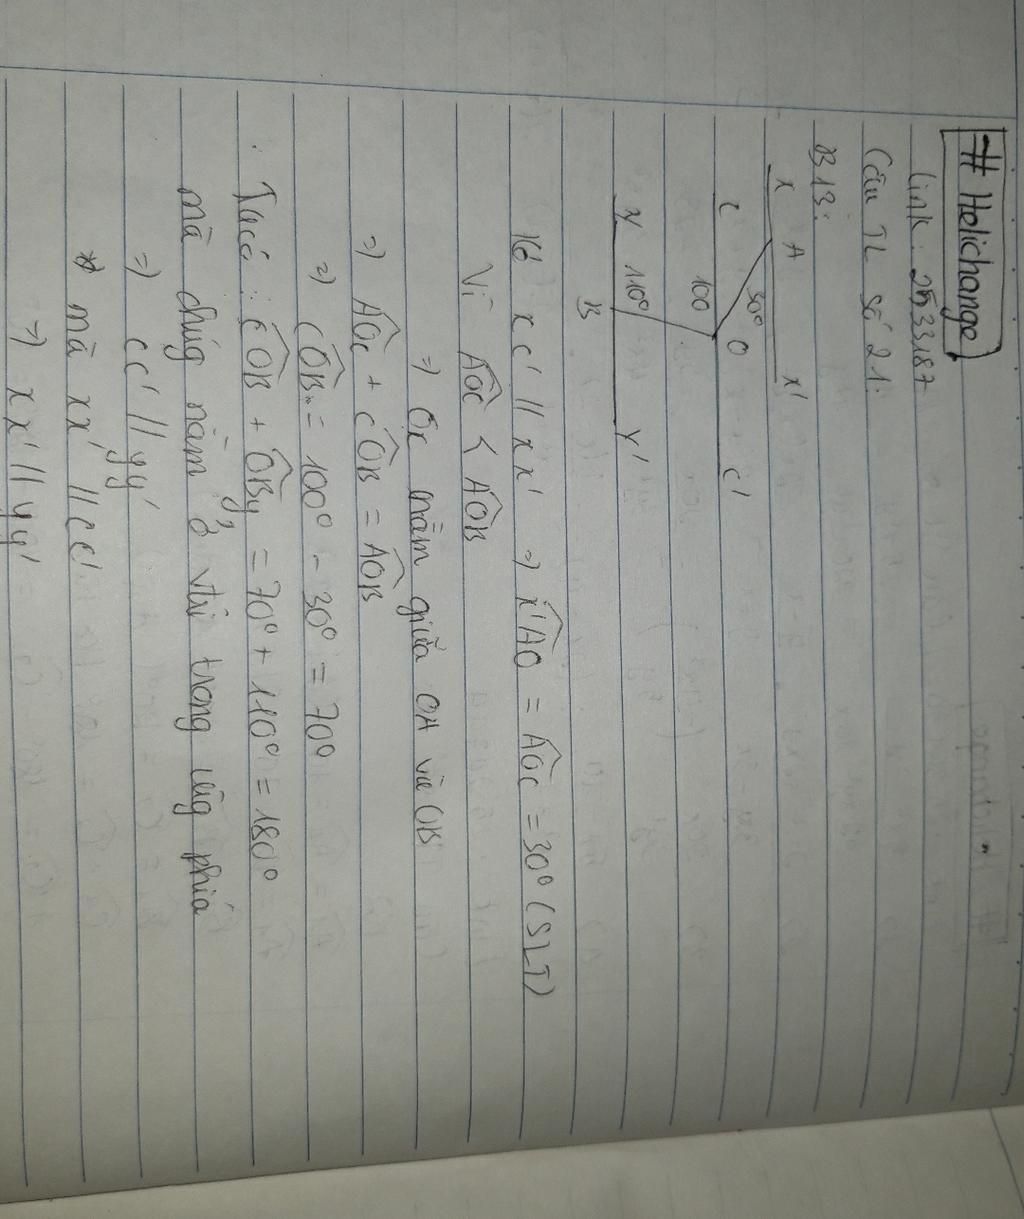 # Helichange
link : 2533187
Câu TL số 21:
B13:
x A x'
30°
c O c'
100
y 110° y'
B
Kẻ xc' // xx' => x'AO = AOc = 30° (SLT)
Vì AOc < AOB
=> Oc nằm giữa OA và OB
=> AOc + cOB = AOB
=> cOB = 100° - 30° = 70°
Ta có : cOB + OBy = 70° + 110° = 180°
mà chúng nằm ở vị trí trong cùng phía
=> cc' // yy'
* mà xx' // cc'
=> xx' // yy'